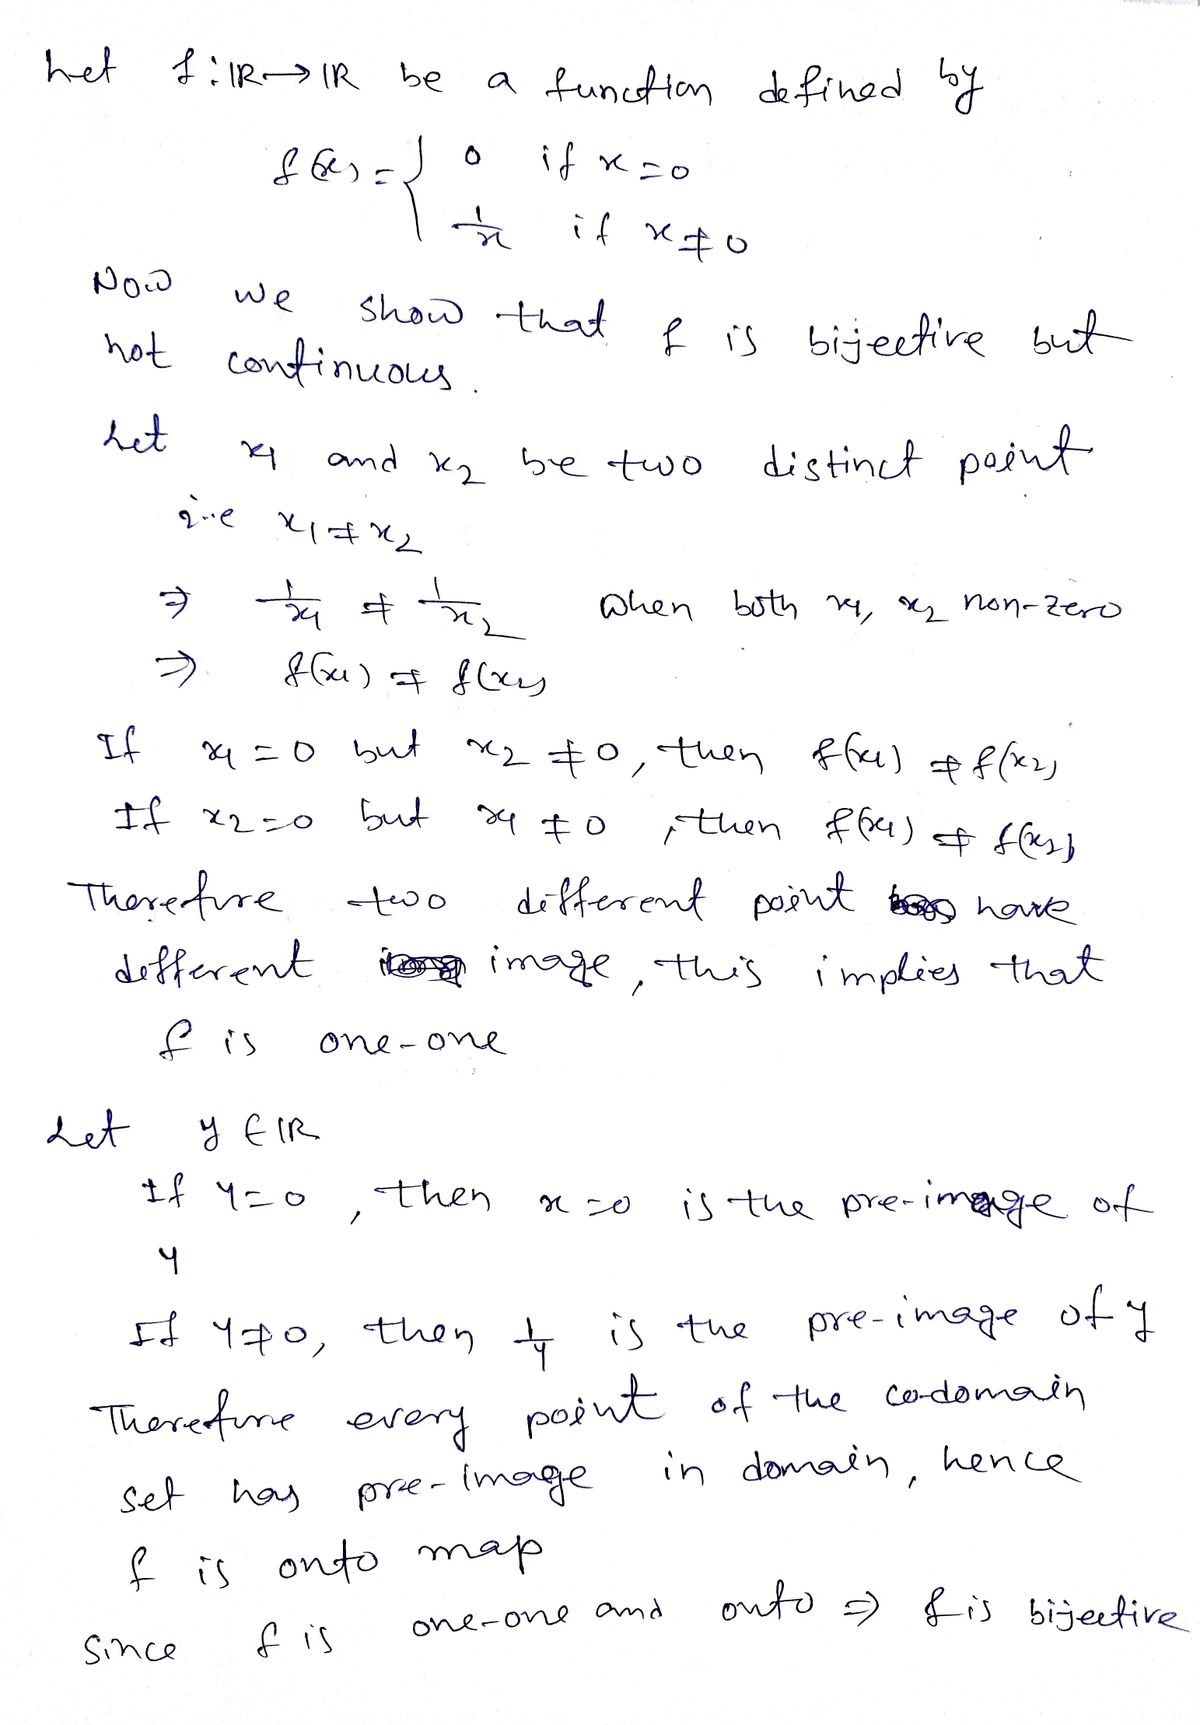 Let f : ℝ → ℝ be a function defined by
f(x) = { 0 if x = 0
1/x if x ≠ 0
Now we show that f is bijective but
not continuous.
Let x₁ and x₂ be two distinct point
i.e x₁ ≠ x₂
⇒ 1/x₁ ≠ 1/x₂ when both x₁, x₂ non-zero
⇒ f(x₁) ≠ f(x₂)
If x₁ = 0 but x₂ ≠ 0, then f(x₁) ≠ f(x₂)
If x₂ = 0 but x₁ ≠ 0, then f(x₁) ≠ f(x₂)
Therefore two different point have
different image, this implies that
f is one-one
Let y ∈ ℝ
If y = 0, then x = 0 is the pre-image of
y
If y ≠ 0, then 1/y is the pre-image of y
Therefore every point of the co-domain
set has pre-image in domain, hence
f is onto map
Since f is one-one and onto ⇒ f is bijective